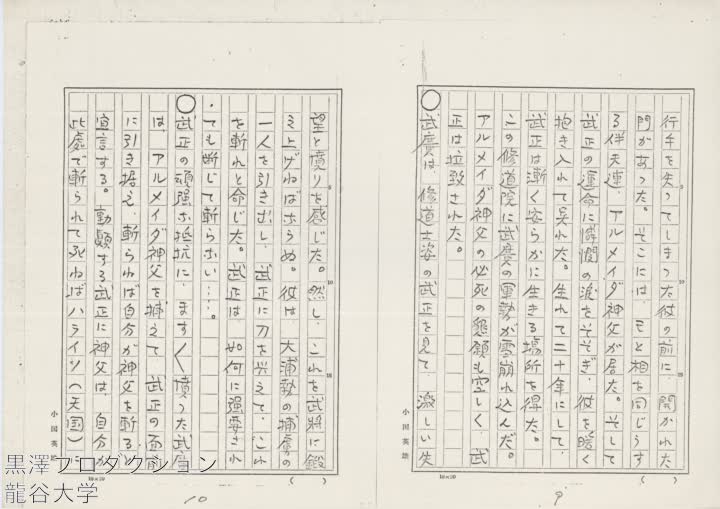 行手を失つてしまつた彼の前に、開かれた
門があつた。そこには、モと相を同じうす
る伴天連、アルメイダ神父が居た。そして
武正の運命に憐憫の涙をそそぎ、彼を暖く
抱き入れて呉れた。生れて二十年にして、
武正は漸く安らかに生きる場所を得た。
この修道院に武廣の軍勢が雪崩れ込んだ。
アルメイダ神父の必死の懇願も空しく、武
正は拉致された。
○武廣は、修道士姿の武正を見て、激しい失
小国英雄
10×20
( )
9
望と憤りを感じた。然し、これを武将に鍛
え上げねばならぬ。彼は、大浦勢の捕虜の
一人を引き出し、武正に刀を与えて、これ
を斬れと命じた。武正は、如何に強要され
ても断じて斬らない…。
○武正の頑強な抵抗に、ます〱憤つた武廣
は、アルメイダ神父を捕えて、武正の面前
に引き据え、斬らねば自分が神父を斬ると
宣言する。動顛する武正に神父は、自分が
此處で斬られて死ねばハライソ(天国)に
小国英雄
10×20
( )
10
黒澤プロダクション
龍谷大学